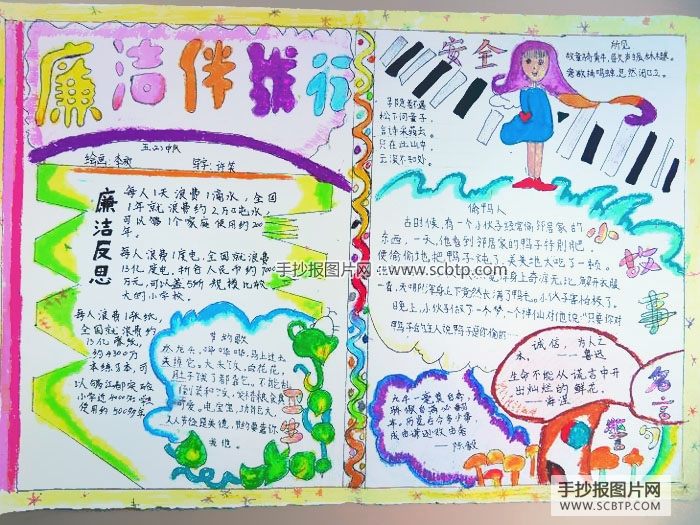 廉洁伴我行
五(2)中队
绘画:李欢
写字:许荣
廉洁反思
每人1天浪费1滴水,全国
1年就浪费约2万吨水,
可以够1个家庭使用约200
年。
每人浪费1度电,全国就浪费
13亿度电,折合人民币约7000
万元,可以盖5所规模比较
大的小学校。
每人浪费1张纸,
全国就浪费约
13亿张纸,
约4300万
本练习本,可
使用约500多年
节约歌
水龙头,哗哗哗,马上过去
关掉它。
人人节俭是美德,
安全
所见
牧童骑黄牛,歌声振林樾。
意欲捕鸣蝉,忽然闭口立。
寻隐者不遇
松下问童子,
言师采药去。
只在此山中,
云深不知处。
偷鸭人
古时候,有一个小伙子经常偷邻居家的
东西,一天,他看到邻居家的鸭子特别肥。
便偷偷地把鸭子炖了,美美地大吃了一顿。
觉得身上奇痒无比,解开衣服
一看,天哪!浑身上下竟然长满了鸭毛。小伙子害怕极了。
晚上,小伙子做了一个梦,一个神仙对他说:“只要你对
鸭子的主人说鸭子是你偷的
小故事
诚信,为人之
本。——鲁迅
生命不能从谎言中开
出灿烂的鲜花。
——海涅
名言警句
九牛一毫莫自夸,
骄傲自满必翻
车。历览古今多少事,
成由谦逊败由奢
——陈毅
手抄报图片网 www.scbtp.com
手抄报图片网
WWW.SCBTP.COM